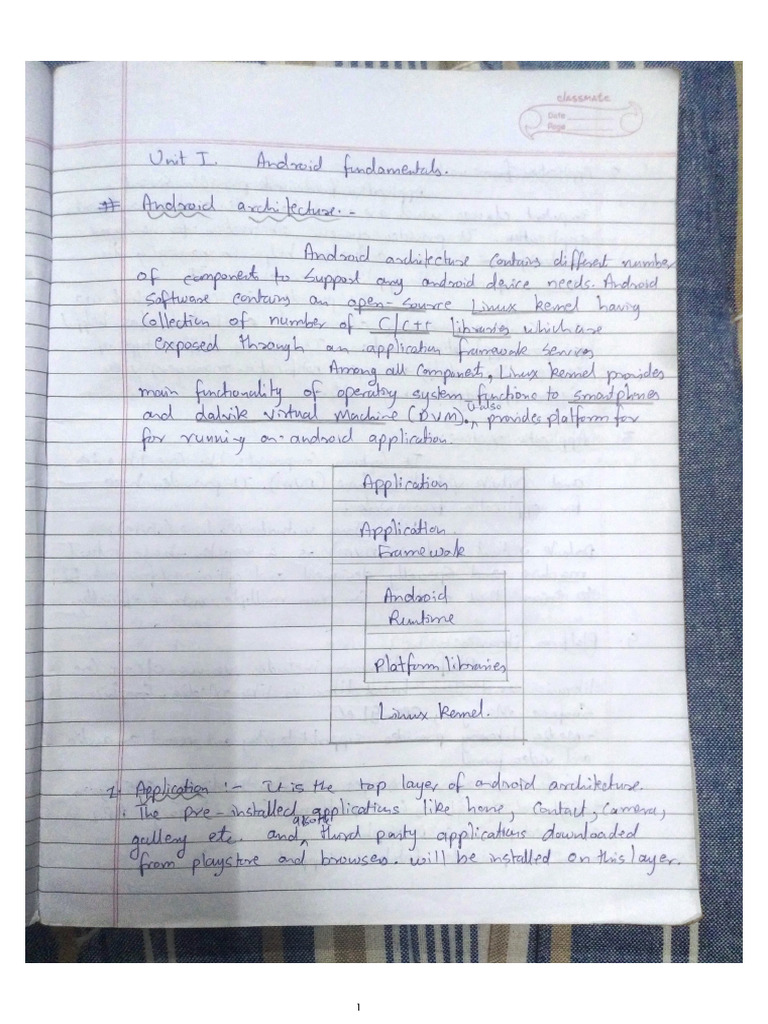 classmate
Date
Page
Unit I. Android fundamentals.
# Android architecture. -
Android architecture contains different number
of components to support any android device needs. Android
Software contains an open-source Linux kernel having
Collection of number of C/C++ libraries which are
exposed through an application framework services
Among all component, Linux kernel provides
main functionality of operating system functions to smartphones
and dalvik virtual machine (DVM). also provides platform for
for running on-android application.
Application
Application
Framework
Android
Runtime
Platform libraries
Linux kernel.
1. Application :- It is the top layer of android architecture.
The pre-installed applications like home, contact, camera,
gallery etc. and third party applications downloaded
from playstore and browser. will be installed on this layer.
1